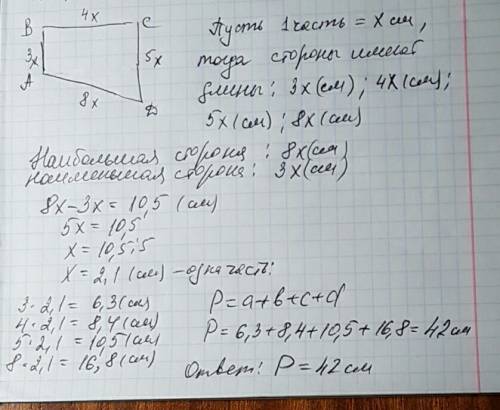 B 4x C
3x 5x
A
8x D
Пусть 1 часть = x см,
тогда стороны имеют
длины: 3x (см); 4x (см);
5x (см); 8x (см)
Наибольшая сторона: 8x (см)
наименьшая сторона: 3x (см)
8x-3x = 10,5 (см)
5x = 10,5
x = 10,5:5
x = 2,1 (см) - одна часть:
3·2,1 = 6,3 (см)
4·2,1 = 8,4 (см)
5·2,1 = 10,5 (см)
8·2,1 = 16,8 (см)
P=a+b+c+d
P=6,3+8,4+10,5+16,8=42 см
Ответ: P=42 см